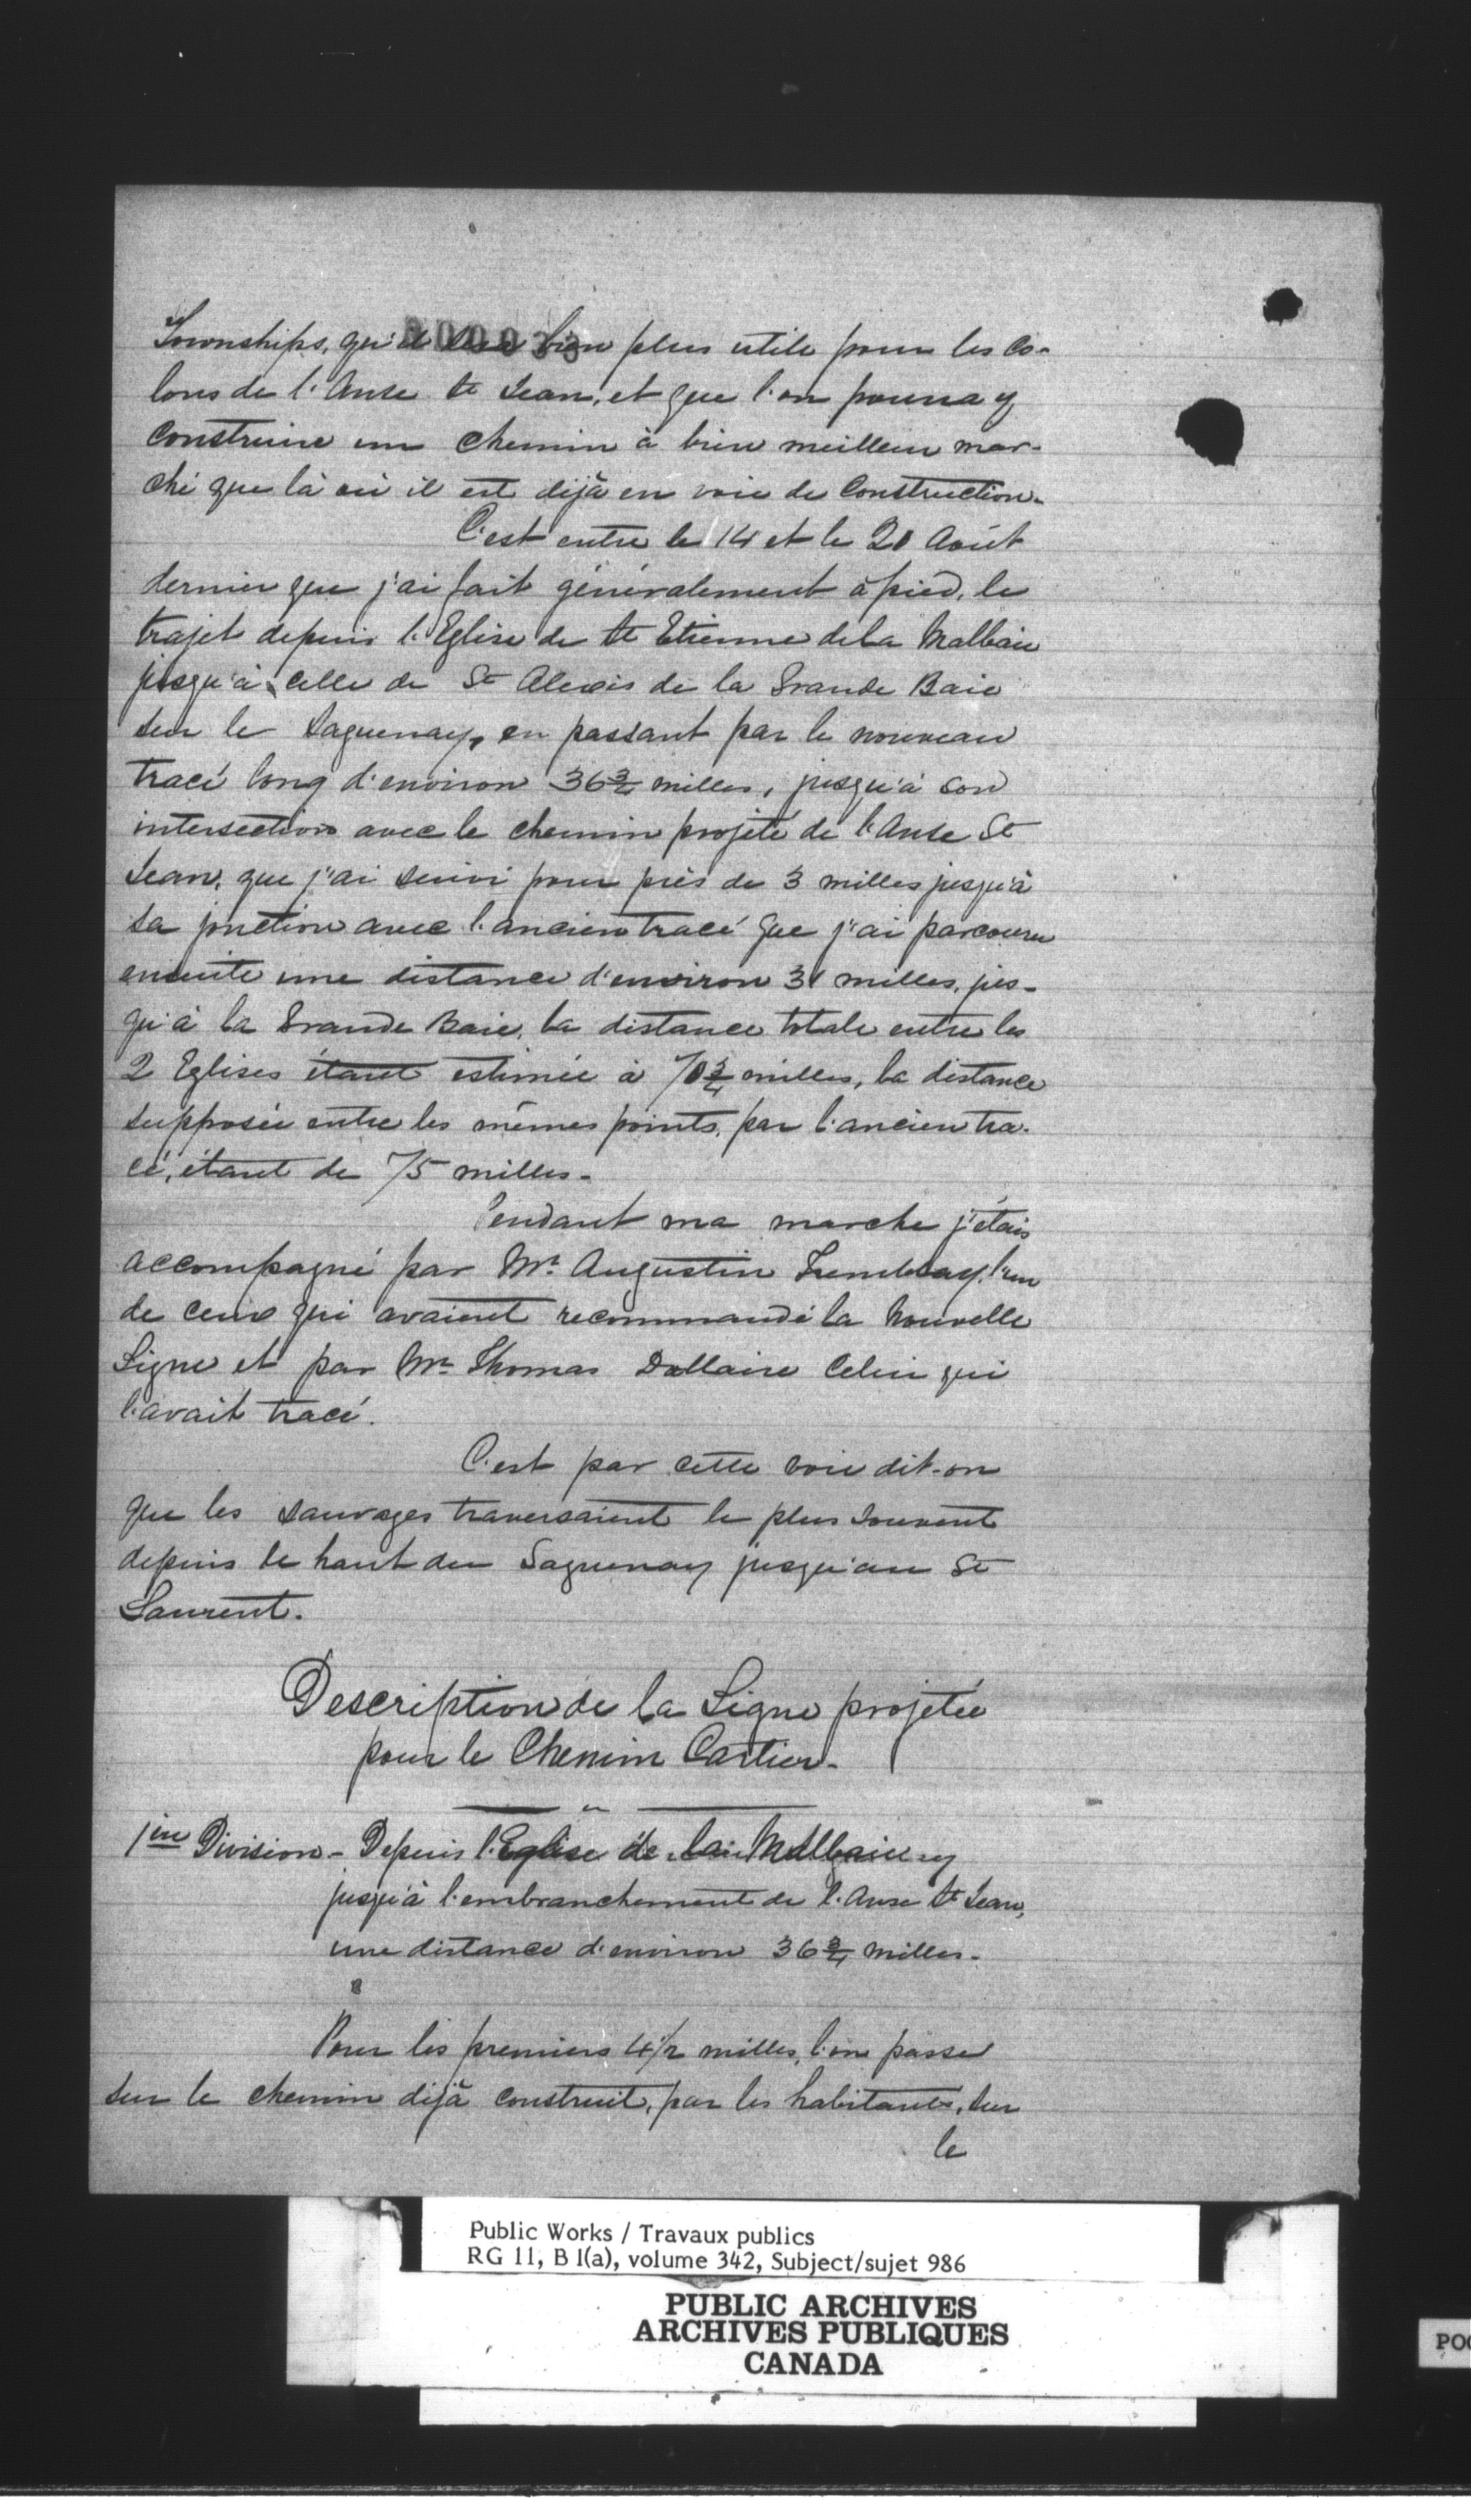 Townships, qu'il sera bien plus utile pour les Co-
lons de l'Anse St Jean, et que l'on pourra y
construire un chemin à bien meilleur mar-
ché que là où il est déjà en voie de Construction.
C'est entre le 14 et le 20 Août
dernier que j'ai fait généralement à pied, le
trajet depuis l'Eglise de St Etienne de la Malbaie
jusqu'à celle de St Alexis de la Grande Baie
sur le Saguenay, en passant par le nouveau
tracé long d'environ 36 3/4 milles, jusqu'à son
intersection avec le chemin projeté de l'Anse St
Jean, que j'ai suivi pour près de 3 milles jusqu'à
sa jonction avec l'ancien tracé que j'ai parcouru
ensuite une distance d'environ 31 milles, jus-
qu'à la Grande Baie, la distance totale entre les
2 Eglises étant estimée à 70 3/4 milles, la distance
supposée entre les mêmes points, par l'ancien tra-
cé, étant de 75 milles.
Pendant ma marche j'étais
accompagné par Mr. Augustin Tremblay, l'un
de ceux qui avaient recommandé la Nouvelle
Ligne et par Mr. Thomas Dallaire Celui qui
l'avait tracé.
C'est par cette voie dit-on
que les sauvages traversaient le plus souvent
depuis le haut du Saguenay jusqu'au St
Laurent.
Description de la Ligne projetée
pour le Chemin Cartier.
1ère Division - Depuis l'Eglise de la Malbaie
jusqu'à l'embranchement de l'Anse St Jean,
une distance d'environ 36 3/4 milles.
Pour les premiers 4 1/2 milles, l'on passe
sur le chemin déjà construit, par les habitants, sur
le
Public Works / Travaux publics
RG 11, B 1(a), volume 342, Subject/sujet 986
PUBLIC ARCHIVES
ARCHIVES PUBLIQUES
CANADA